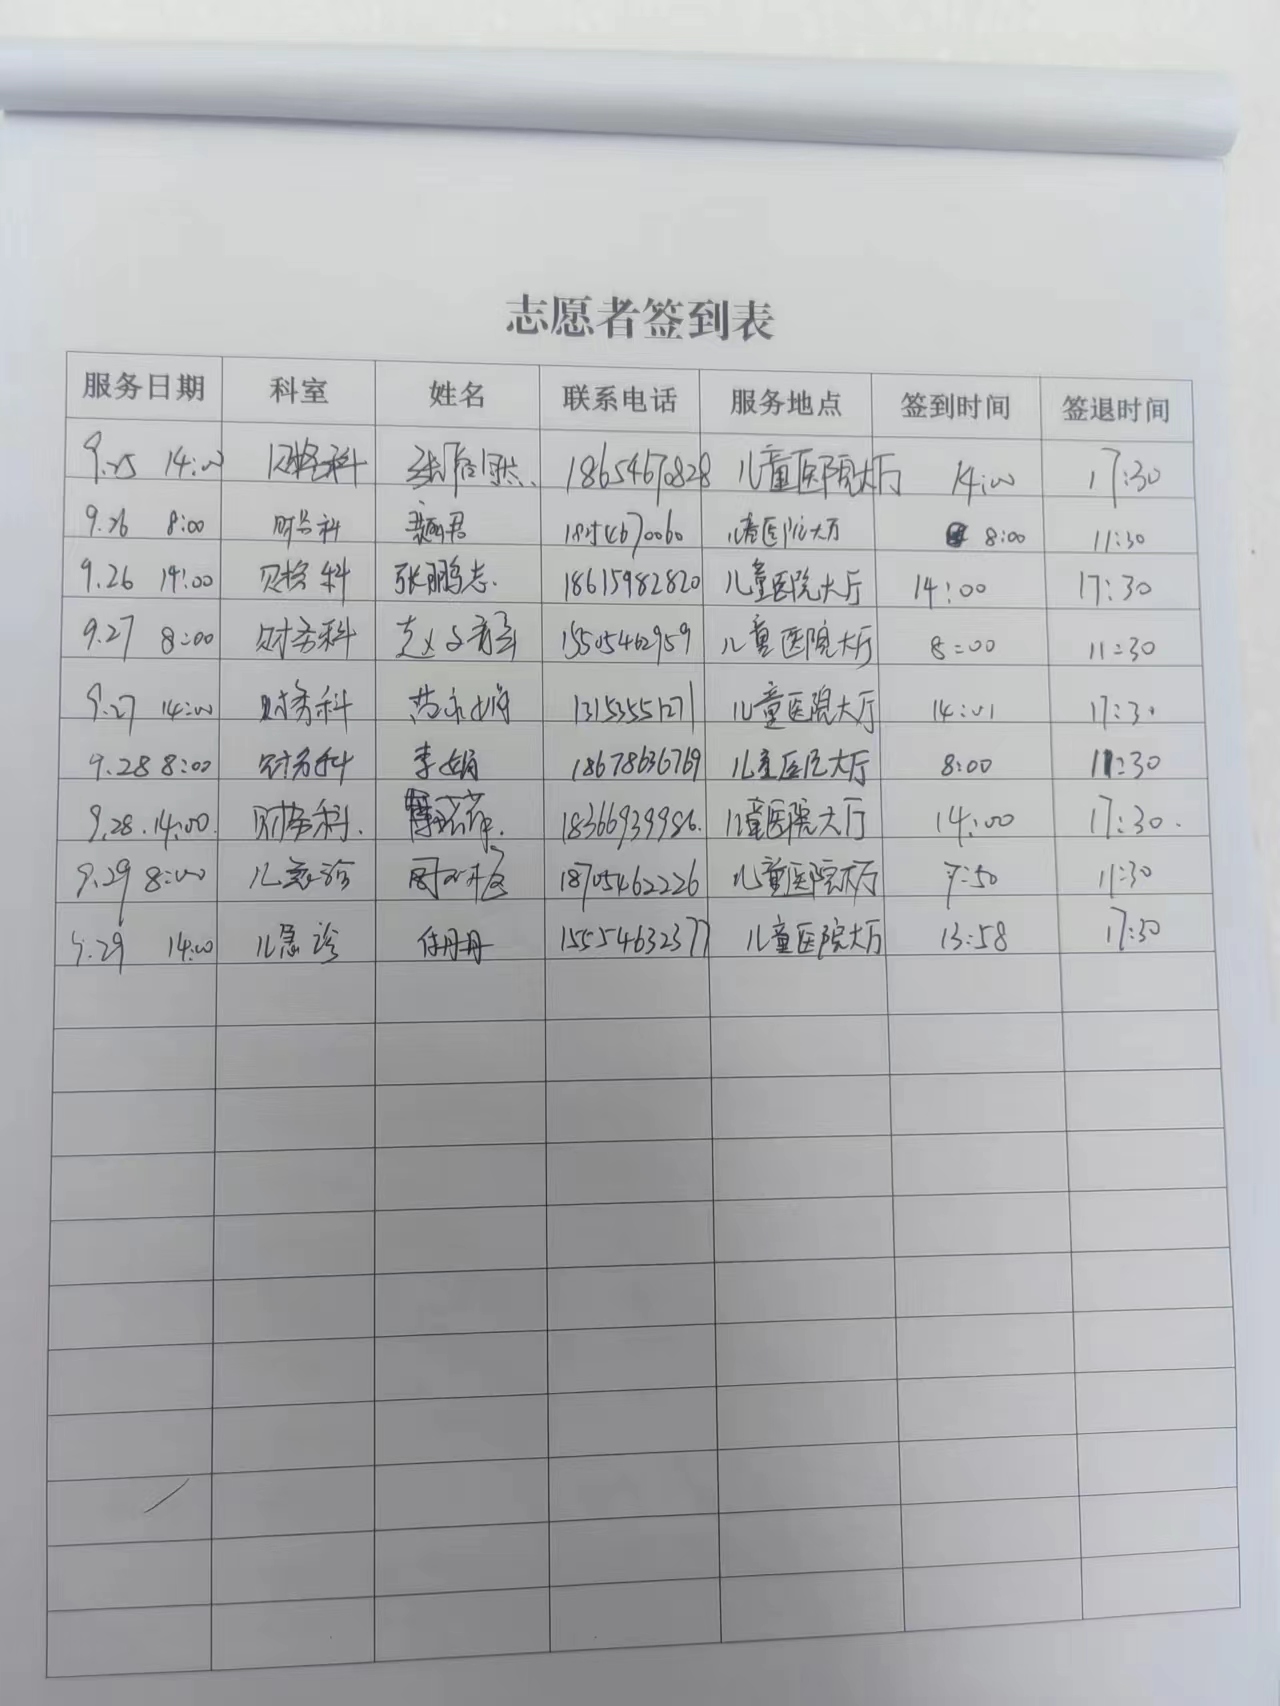 志愿者签到表
服务日期 科室 姓名 联系电话 服务地点 签到时间 签退时间
9.25 14:00 财务科 18654670828 儿童医院大厅 14:00 17:30
9.26 8:00 财务科 18254670060 儿童医院大厅 8:00 11:30
9.26 14:00 财务科 张鹏志. 18615982820 儿童医院大厅 14:00 17:30
9.27 8:00 财务科 15505462959 儿童医院大厅 8:00 11:30
9.27 14:00 财务科 13153551271 儿童医院大厅 14:01 17:30
9.28 8:00 财务科 李娟 18678636769 儿童医院大厅 8:00 11:30
9.28. 14:00. 财务科. 18366939986. 儿童医院大厅 14:00 17:30.
9.29 8:00 儿急诊 18705462226 儿童医院大厅 7:50 11:30
9.29 14:00 儿急诊 任丹丹 15554632377 儿童医院大厅 13:58 17:30